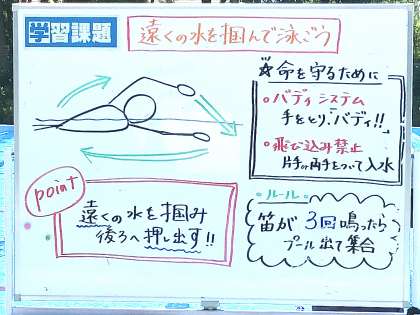 学習課題
遠くの水を掴んで泳ごう
☆命を守るために
・バディシステム
手をとり、「バディ!!」
・飛び込み禁止
片手か両手をついて入水
point
遠くの水を掴み
後ろへ押し出す!!
・ルール・
笛が3回鳴ったら
プール出て集合